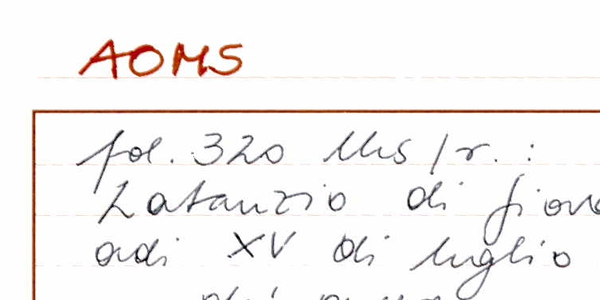 AOMS
fol. 320 Ms/r. :
Latanzio di
adi XV di luglio